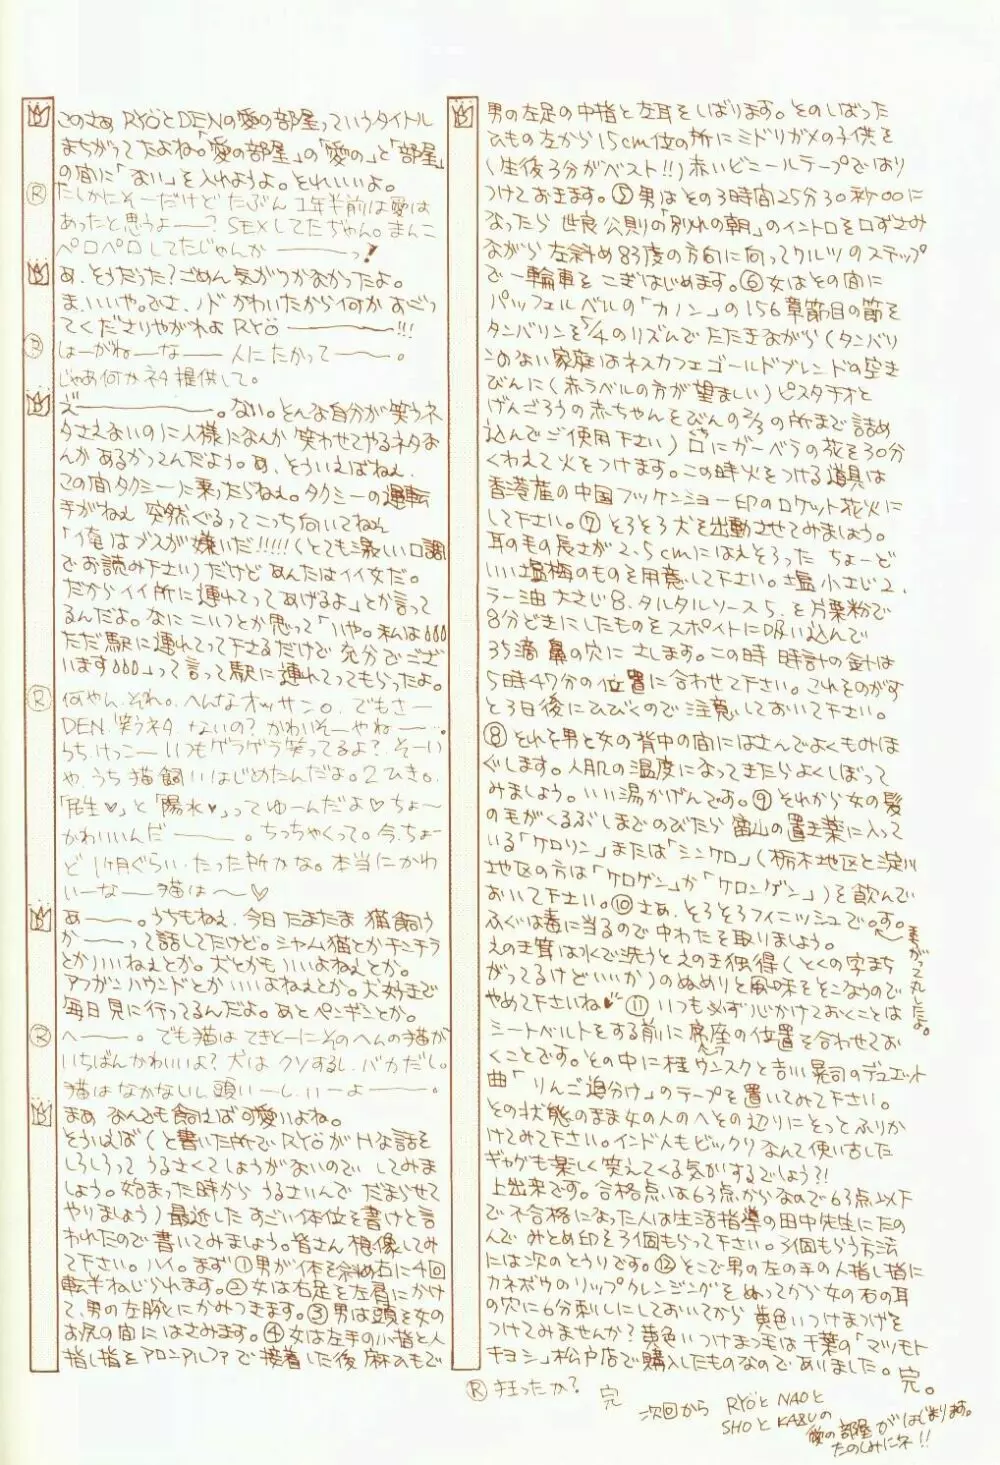 このさぁ RYÖとDENの愛の部屋っていうタイトル
まちがってたよね。「愛の部屋」の「愛の」と「部屋」
の間に「ない」を入れようよ。それいいよ。
Ⓡ たしかにそーだけど たぶん 1年半前は愛は
あったと思うよ——? SEXしてたぢゃん。まんこ
ペロペロ してたじゃんか————っ!
あ、そうだった?ごめん 気がつかなかったよ。
ま、いいや。でさ、ノド かわいたから何か おごっ
てくださりやがれよ RYÖ————!!!
Ⓡ しょーがねーなー 人にたかって——。
じゃあ何かネタ提供して。
え————。ない。そんな自分が笑うネ
タさえないのに人様になんか 笑わせてやるネタな
んか あるかってんだよう。あ、そういえばねえ、
この間タクシーに乗ったらねえ。タクシーの運転
手がねえ 突然ぐるってこっち向いてねえ
「俺はブスが嫌いだ!!!!!(とても激しい口調
でお読み下さい)だけど あんたはイイ女だ。
だからイイ所に連れてってあげるよ」とか言って
るんだよ。なにこいつとか思って「いや。私は
ただ駅に連れてって下さるだけで 充分でござ
います」って言って駅に連れてってもらったよ。
Ⓡ 何やん、それ。へんなオッサン。でもさー
DEN、笑うネタ ないの? かわいそーやねー…
うち、けっこーいつもゲラゲラ笑ってるよ? そーい
や、うち猫飼いはじめたんだよ。2ひき。
「民生♥」と「陽水♥」ってゆーんだよ♡ ちょ〜
かわいいんだ——。ちっちゃくって。今、ちょー
ど 1ヶ月ぐらい、たった所かな。本当にかわ
いーなー 猫は〜♡
あ——。うちもねえ、今日 たまたま 猫飼う
か——って話してたけど。シャム猫とかチンチラ
とかいいねえとか。犬とかもいいよねえとか。
アフガンハウンドとかいいよねえとか。犬好きで
毎日見に行ってるんだよ。あとペンギンとか。
Ⓡ へ——。でも猫は てきとーにそのへんの猫が
いちばんかわいいよ? 犬は クソするし、バカだし。
猫はなかないし、頭いーし、いーよ——。
まあ なんでも飼えば可愛いよね。
そういえば(と書いた所でRYÖがHな話を
しろしろって うるさくてしょうがないので してみま
しょう。始まった時から うるさいんで だまらせて
やりましょう)最近した すごい体位を書けと言
われたので書いてみましょう。皆さん想像してみ
て下さい。ハイ。まず①男が体を斜め右に4回
転半ねじられます。②女は右足を左肩にかけ
て、男の左腕とにかみつきます。③男は頭を女の
お尻の間にはさみます。④女は左手の小指と人
指し指をアロンアルファで接着した後 麻ひもで
男の左足の中指と左耳をしばります。そのしばった
ひもの左から15cm位の所にミドリガメの子供を
(生後3分がベスト!!)赤いビニールテープではり
つけておきます。⑤男はその3時間25分30秒00に
なったら 世良公則の「別れの朝」のイントロを口ずさみ
ながら左斜め83度の方向に向ってワルツのステップ
で一輪車をこぎはじめます。⑥女はその間に
パッフェルベルの「カノン」の156章節目の節を
タンバリンを5/4のリズムでたたきながら(タンバリ
ンのない家庭はネスカフェゴールドブレンドの空き
びんに(赤ラベルの方が望ましい)ピスタチオと
げんごろうの赤ちゃんをびんの2/3の所まで詰め
込んでご使用下さい)口にガーベラの花を30分
くわえて火をつけます。この時火をつける道具は
香港産の中国フッケンショー印のロケット花火に
して下さい。⑦そろそろ犬を出動させてみましょう。
耳の毛の長さが2.5cmにはえそろった ちょーど
いい塩梅のものを用意して下さい。塩 小さじ2、
ラー油 大さじ8、タルタルソース5、を片栗粉で
8分どきにしたものをスポイトに吸い込んで
35滴 鼻の穴に さします。この時 時計の針は
5時47分の位置に合わせて下さい。これをのがす
と3日後にひびくので注意しておいて下さい。
⑧それを男と女の背中の間にはさんでよくもみほ
ぐします。人肌の温度になってきたらよくしぼって
みましょう。いい湯かげんです。⑨それから女の髪
の毛がくるぶしまでのびたら富山の置き薬に入って
いる「ケロリン」または「シンケロ」(栃木地区と淀川
地区の方は「ケロゲン」か「ケロンゲン」)を飲んで
おいて下さい。⑩さあ、そろそろフィニッシュです。
ふぐは毒に当るので中わたを取りましょう。
えのき茸は水で洗うとえのき独得(とくの字まち
がってるけどいいか)のぬめりと風味をそこなうので
やめて下さいね ⑪いつも必ず心がけておくことは
シートベルトをする前に席座の位置を合わせてお
くことです。その中に桂ウンスクと吉川晃司のデュエット
曲「りんご追分け」のテープを置いてみて下さい。
その状態のまま女の人のへその辺りにそっとふりか
けてみて下さい。インド人もビックリなんて使い古した
ギャグも楽しく笑えてくる気がするでしょう?!
上出来です。合格点は63点からなので63点以下
で不合格になった人は生活指導の田中先生にたの
んで みとめ印を3個もらって下さい。3個もらう方法
には次のとうりです。⑫そこで男の左の手の人指し指に
カネボウのリップクレンジングをぬってから女の右の耳
の穴に6分刺しにしておいてから 黄色いつけまつげを
つけてみませんか? 黄色いつけまつ毛は千葉の「マツモト
キヨシ」松戸店で購入したものなのでありました。完。
まがって丸したよ。
Ⓡ 狂ったか? 完
次回から RYÖとNAOと
SHOとKAZUの
愛の部屋がはじまります。
たのしみにネ!!